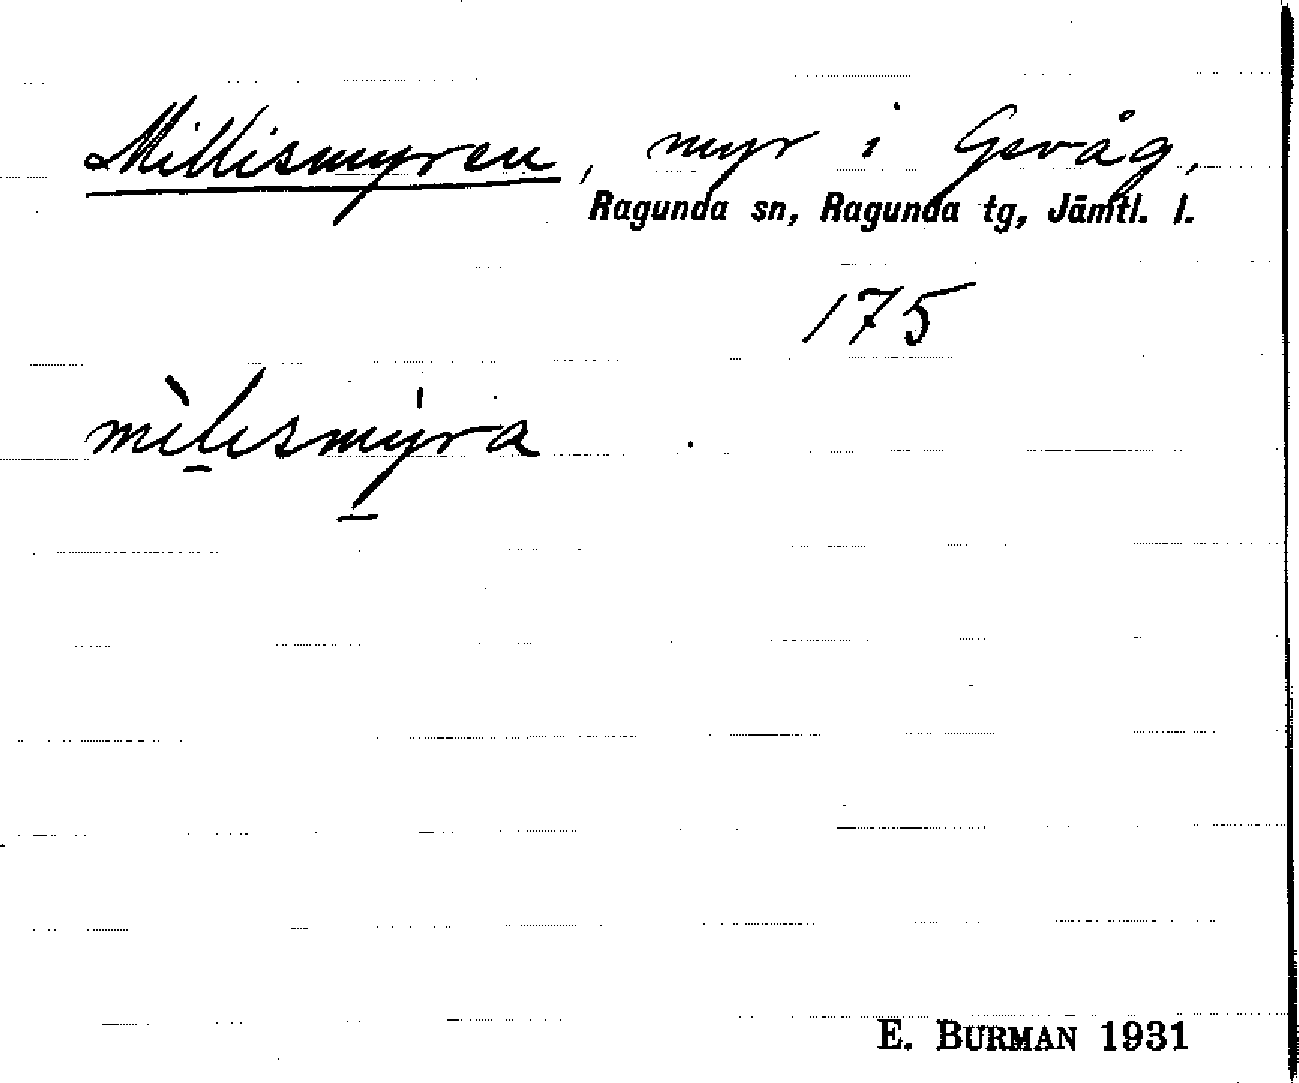 Millismyren, myr i Gevåg,
Ragunda sn, Ragunda tg, Jämtl. l.
175
mìl̠ismy̠̍ra
E. BURMAN 1931